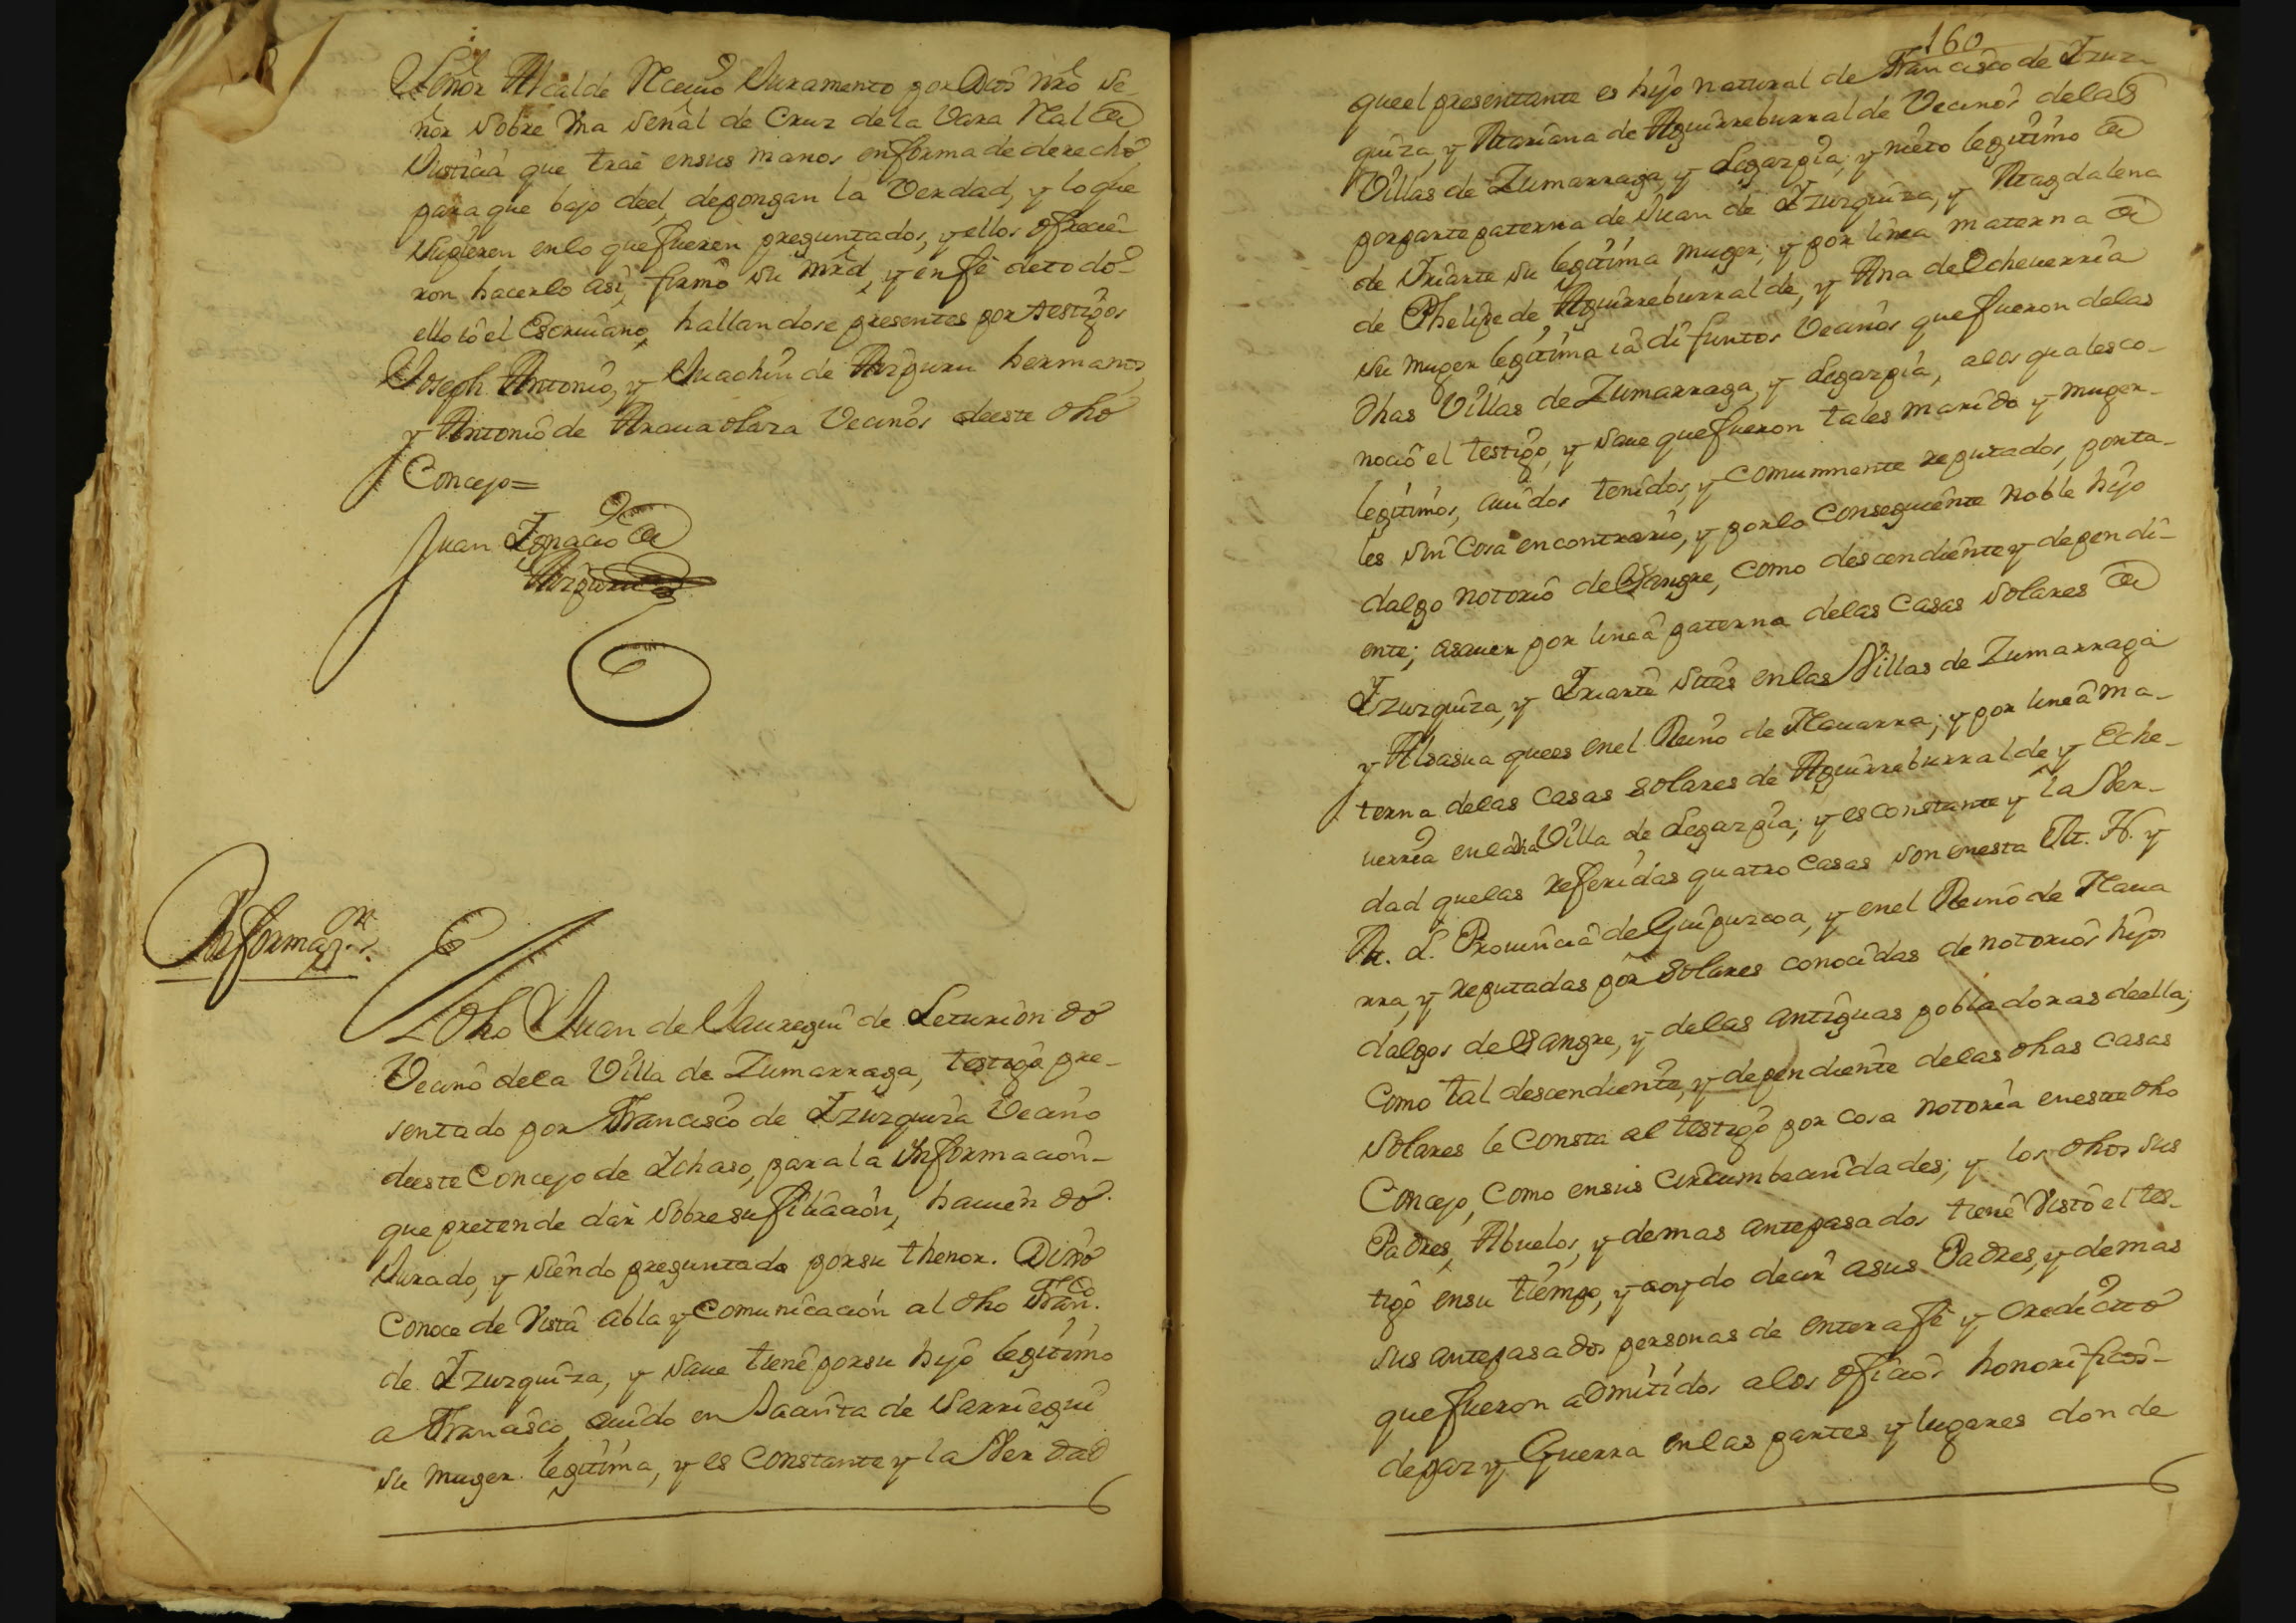 Señor Alcalde Recivió Juramento por Dios nrō Se-
ñor sobre Una señal de Cruz de la Vara Real de
Justicia que trae en sus manos en forma de derecho,
para que bajo de el, depongan la Verdad, y lo que
supieren en lo que fueren preguntados, y ellos ofrecie-
ron hacerlo asi, firmó su mrd, y en fè de todo
ello io el Escrivano, hallandose presentes por testigos
Joseph Antonio, y Juachin de Aizpuru hermanos,
y Antonio de Arana olaza Vecinos de este dho
Concejo=
Juan Ignacio de
Aizpuru
Informazon.
El dho Juan de Jauregui de Leturiondo
Vecino de la Villa de Zumarraga, testigo pre-
sentado por Francisco de Izurquiza Vecino
de este Concejo de Ichaso, para la Información
que pretende dar sobre su filiación, haviendo
Jurado, y siendo preguntado por su thenor. Dixo
Conoce de Vista abla y Comunicación al dho Franco.
de Izurquiza, y save tiene por su hijo legitimo
a Francisco, avido en de Sarriegui
su muger legitima, y es Constante y la Verdad
160
que el presentante es hijo natural de Francisco de Izur-
quiza, y Mariana de Aguirreburralde Vecinos de las
Villas de Zumarraga, y Legazpia; y nieto legitimo de
por parte paterna de Juan de Izurquiza, y Magdalena
de Iriarte su legitima muger; y por linea materna de
de Phelipe de Aguirreburralde, y Ana de Echeverria
su muger legitima ia difuntos Vecinos que fueron de las
dhas Villas de Zumarraga, y Legazpia, a los quales co-
noció el testigo, y save que fueron tales marido y muger
legitimos, avidos tenidos, y Comunmente reputados, por ta-
les sin Cosa en contrario, y por lo Conseguiente noble hijo
dalgo notorio de Sangre, Como descendiente y dependi-
ente; asaver por linea paterna de las Casas Solares de
Izurquiza, y Iriarte sitas en las Villas de Zumarraga
y Alsasua que es en el Reino de Navarra; y por linea ma-
terna de las Casas Solares de Aguirreburralde y Eche-
verria en la dha Villa de Legazpia; y es constante y la Ver-
dad que las referidas quatro Casas son en esta M. N. y
M. L. Provincia de Guipuzcoa, y en el Reino de Nava
rra, y reputadas por Solares conocidas de notorios hijos
dalgos de Sangre, y de las antiguas pobladoras de ella;
Como tal descendiente, y dependiente de las dhas Casas
Solares le Consta al testigo por Cosa notoria en este dho
Concejo, Como en sus Circumbecindades; y los dhos sus
Padres, Abuelos, y demas antepasados tiene Visto el tes-
tigo en su tiempo, y aoydo decir a sus Padres, y demas
sus antepasados personas de entera fe y Credicto
que fueron admitidos a los oficios honorificos
de paz y Guerra en las partes y lugares donde